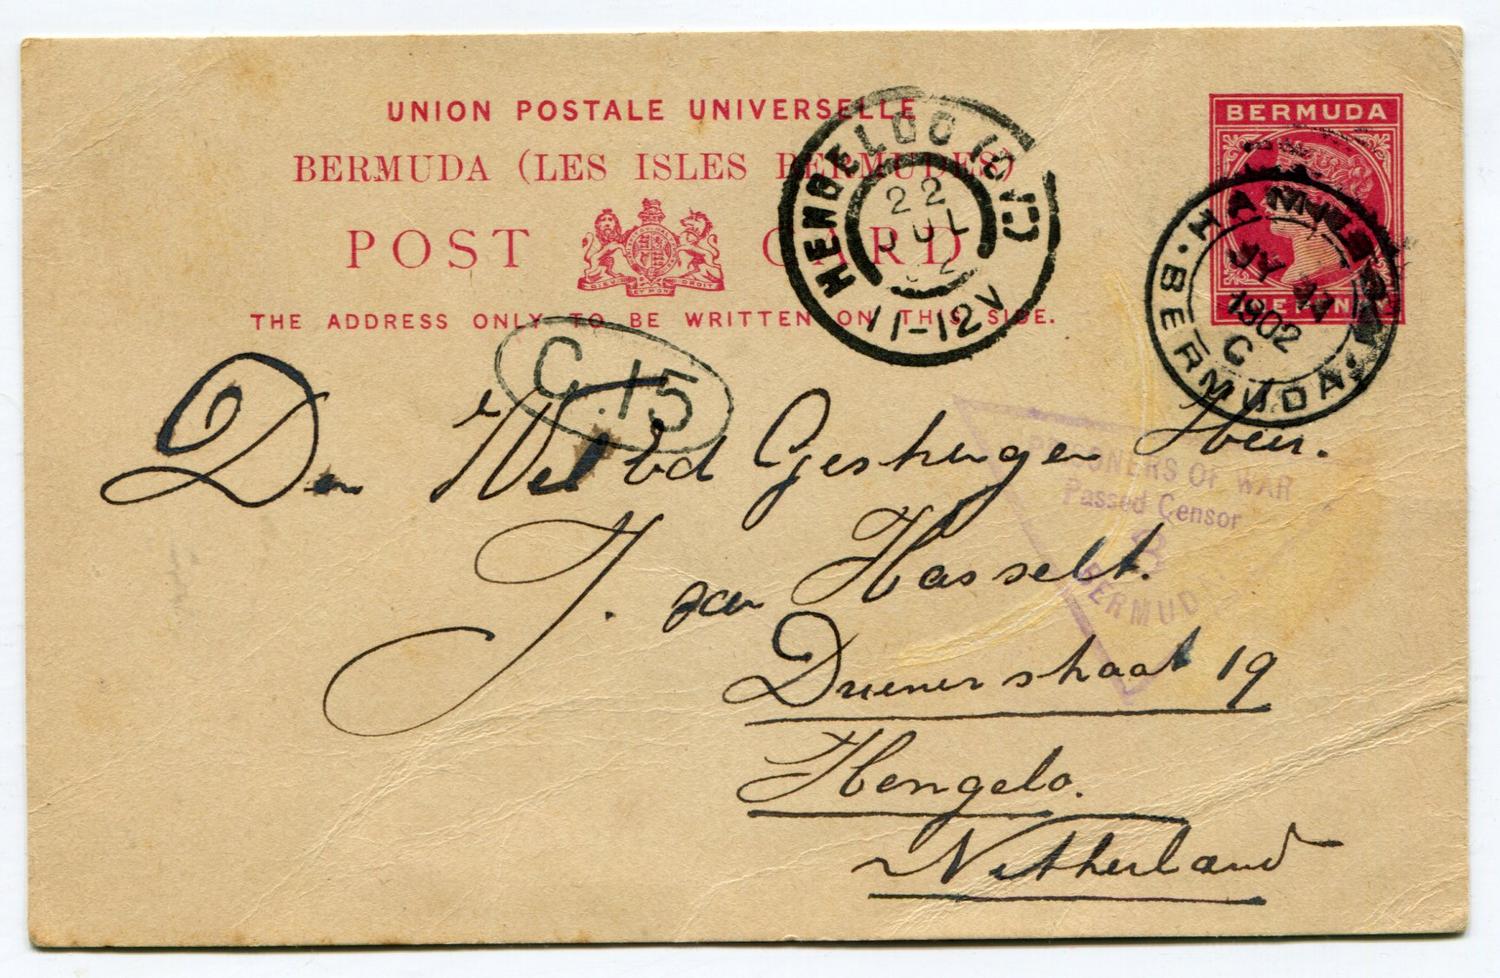 UNION POSTALE UNIVERSELLE
BERMUDA (LES ISLES BERMUDES)
POST CARD
THE ADDRESS ONLY TO BE WRITTEN ON THIS SIDE.
BERMUDA
ONE PENNY
HENGELOO (OV)
22
JUL
02
11-12V
HAMILTON
JY
1902
C
BERMUDA
C.15
PRISONERS OF WAR
Passed Censor
8
BERMUDA
Den Wel Ed Gestrengen Heer.
J. van Hasselt.
Drienerstraat 19
Hengelo.
Netherland